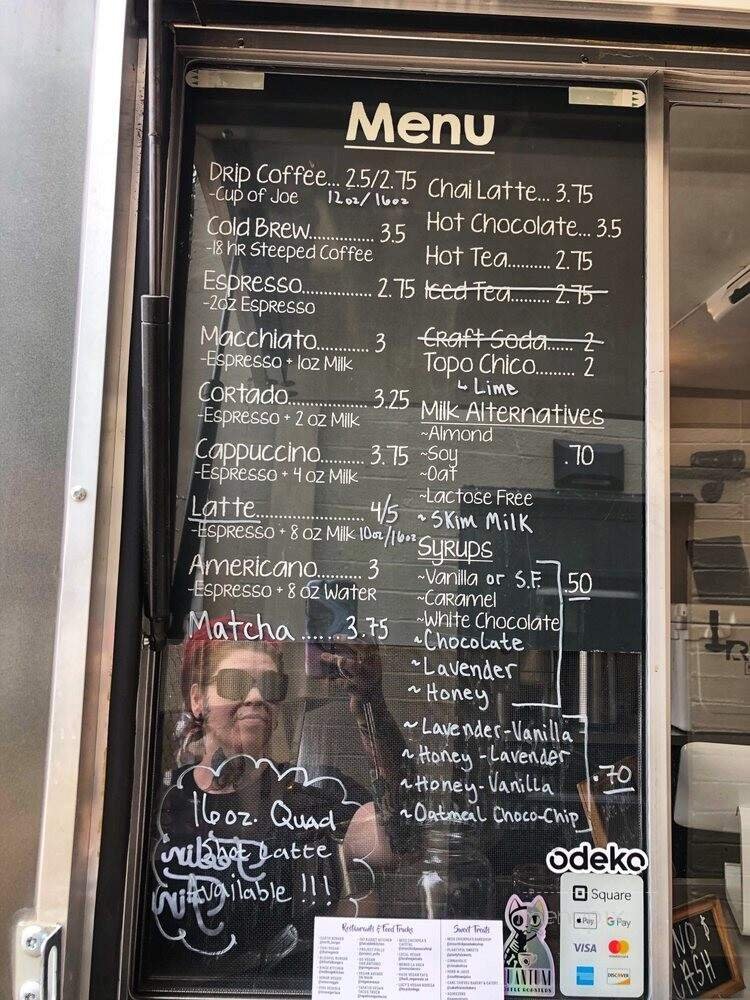 Menu
Drip Coffee... 2.5/2.75
-Cup of Joe 12oz/16oz
Cold Brew.............. 3.5
-18 hr Steeped Coffee
Espresso............... 2.75
-2oz Espresso
Macchiato............ 3
-Espresso + 1oz Milk
Cortado................. 3.25
-Espresso + 2 oz Milk
Cappuccino.......... 3.75
-Espresso + 4 oz Milk
Latte....................... 4/5
-Espresso + 8 oz Milk 10oz/16oz
Americano.......... 3
-Espresso + 8 oz Water
Matcha ...... 3.75
Chai Latte... 3.75
Hot Chocolate... 3.5
Hot Tea.......... 2.75
Iced Tea.......... 2.75
Craft Soda...... 2
Topo Chico......... 2
↳ Lime
Milk Alternatives
~Almond
~Soy .70
~Oat
~Lactose Free
~ Skim Milk
Syrups
~Vanilla or S.F. .50
~Caramel
~White Chocolate
~Chocolate
~Lavender
~Honey
~Lavender-Vanilla
~Honey-Lavender
~Honey-Vanilla .70
~Oatmeal Choco-Chip
16oz. Quad
Latte
Available !!!
odeko
Square
Pay G Pay
VISA mastercard
DISCOVER
Restaurants & Food Trucks
Sweet Treats
NO $
CASH